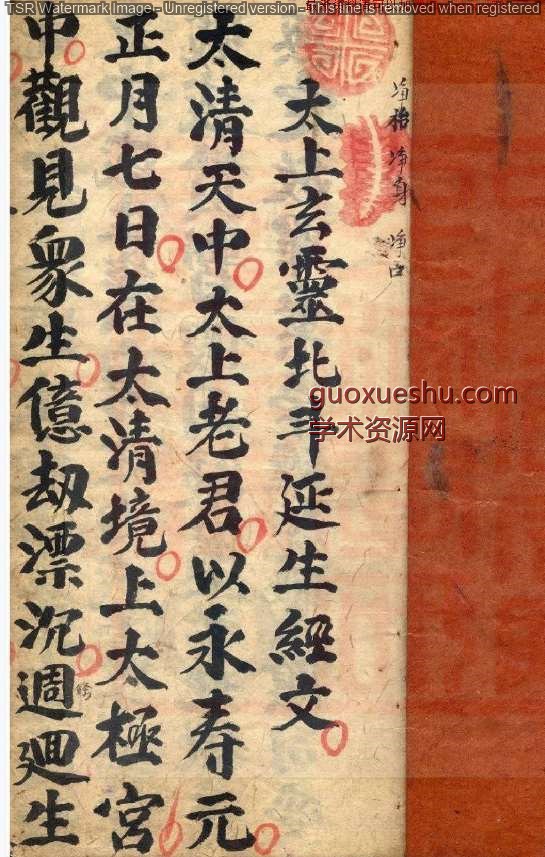 TSR Watermark Image - Unregistered version - This line is removed when registered
淨身 淨口
太上玄靈北斗延生經文
太清天中太上老君以永壽元
正月七日在太清境上太極宮
中觀見衆生億劫漂沉週迴生
guoxueshu.com
学术资源网